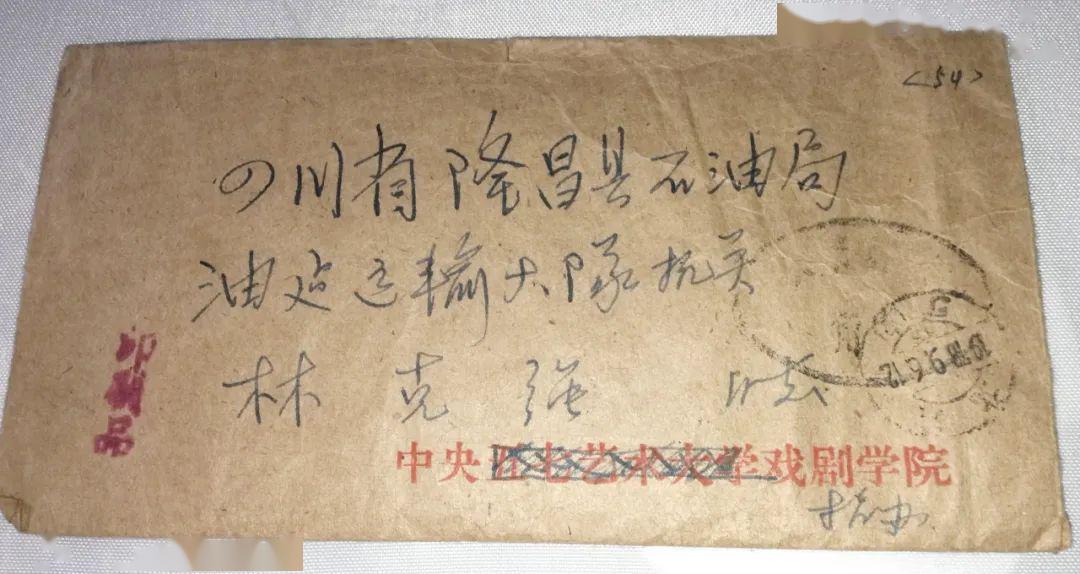 <54>
四川省隆昌县石油局
油运输大队机关
林克强
印刷品
1978.9.6.12
中央五七艺术大学戏剧学院
招办